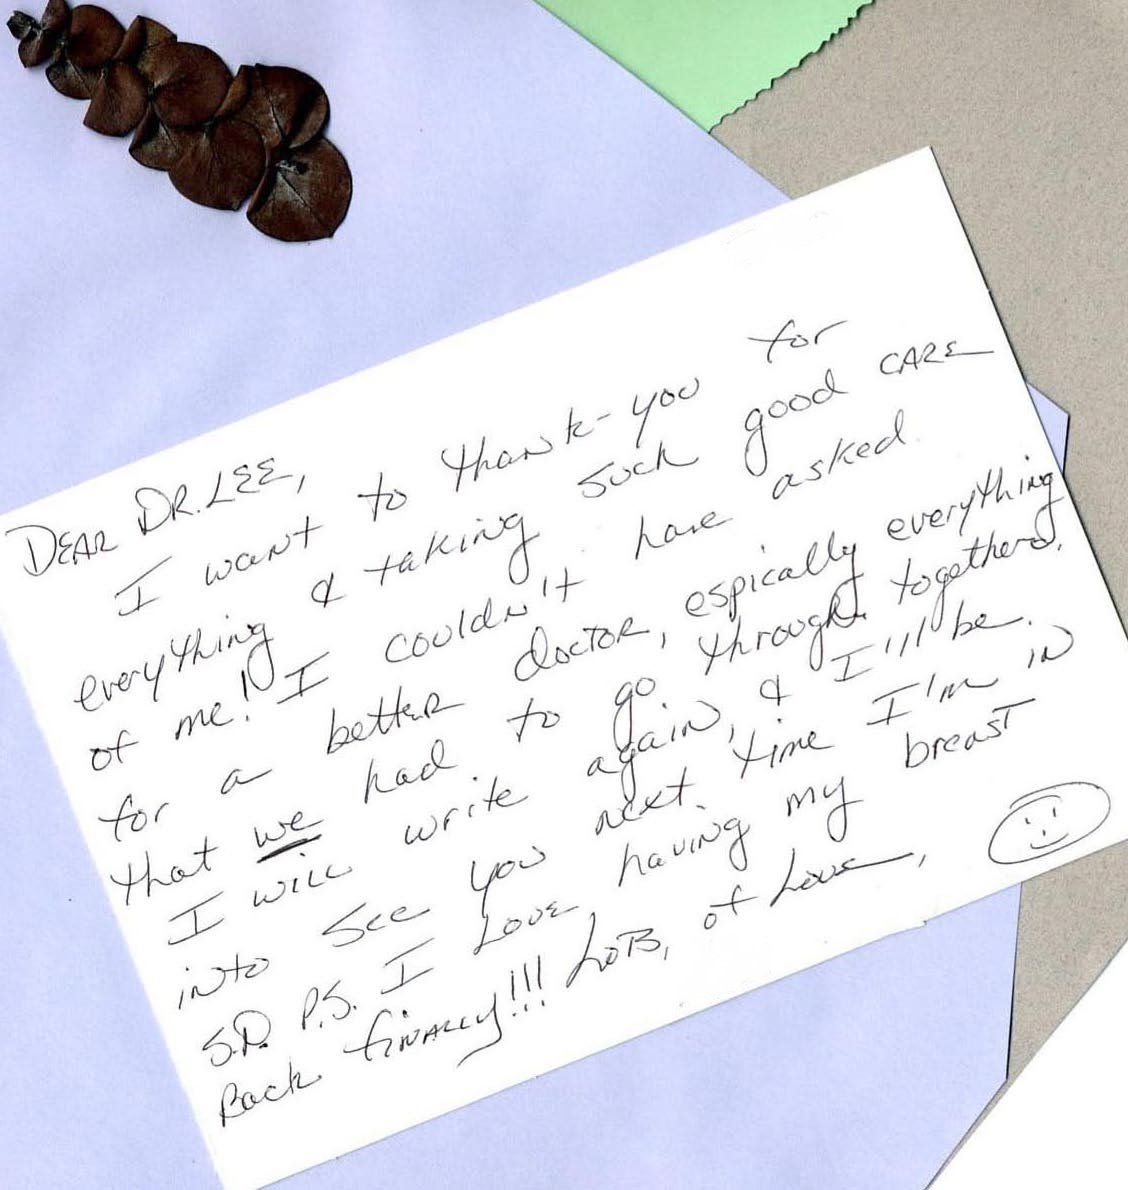 DEAR DR. LEE,
I want to thank-you for
everything & taking such good CARE
of me! I couldn't have asked
for a better doctor, espically everything
that we had to go through together.
I will write again, & I'll be
into see you next time I'm in
S.D. P.S. I Love having my breast
Back finally!!! Lots, of Love,